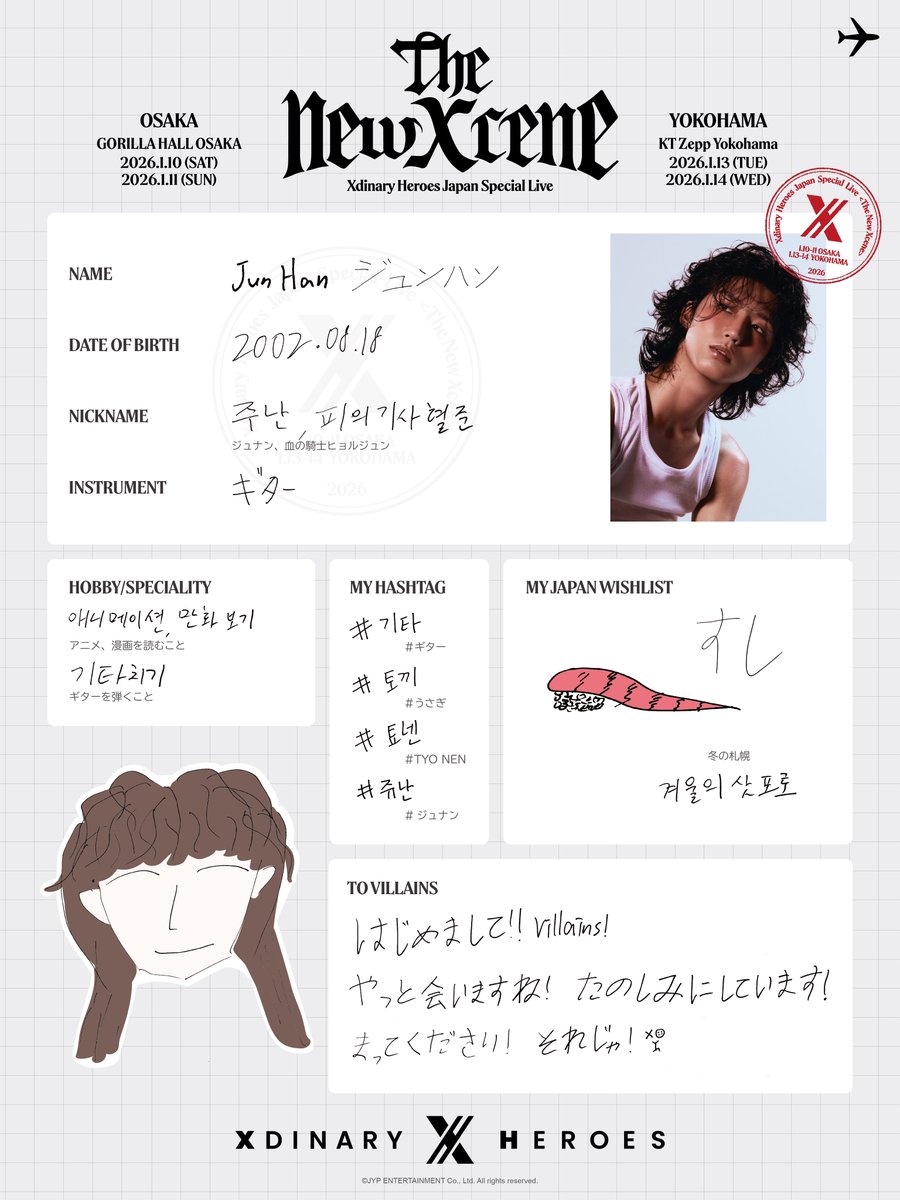 The
New Xcene
Xdinary Heroes Japan Special Live
OSAKA
GORILLA HALL OSAKA
2026.1.10 (SAT)
2026.1.11 (SUN)
YOKOHAMA
KT Zepp Yokohama
2026.1.13 (TUE)
2026.1.14 (WED)
Xdinary Heroes Japan Special Live <The New Xcene>
1.10-11 OSAKA
1.13-14 YOKOHAMA
2026
NAME
Jun Han ジュンハン
DATE OF BIRTH
2002.08.18
NICKNAME
주난, 피의기사혈준
ジュナン、血の騎士ヒョルジュン
INSTRUMENT
ギター
1.13-14 YOKOHAMA
2026
HOBBY/SPECIALITY
애니메이션, 만화 보기
アニメ、漫画を読むこと
기타치기
ギターを弾くこと
MY HASHTAG
# 기타
#ギター
# 토끼
#うさぎ
# 툐넨
#TYO NEN
#쥬난
# ジュナン
MY JAPAN WISHLIST
すし
冬の札幌
겨울의 삿포로
TO VILLAINS
はじめまして!! Villains!
やっと会いますね! たのしみにしています!
まってください! それじゃ!
XDINARY HEROES
©JYP ENTERTAINMENT Co., Ltd. All rights reserved.